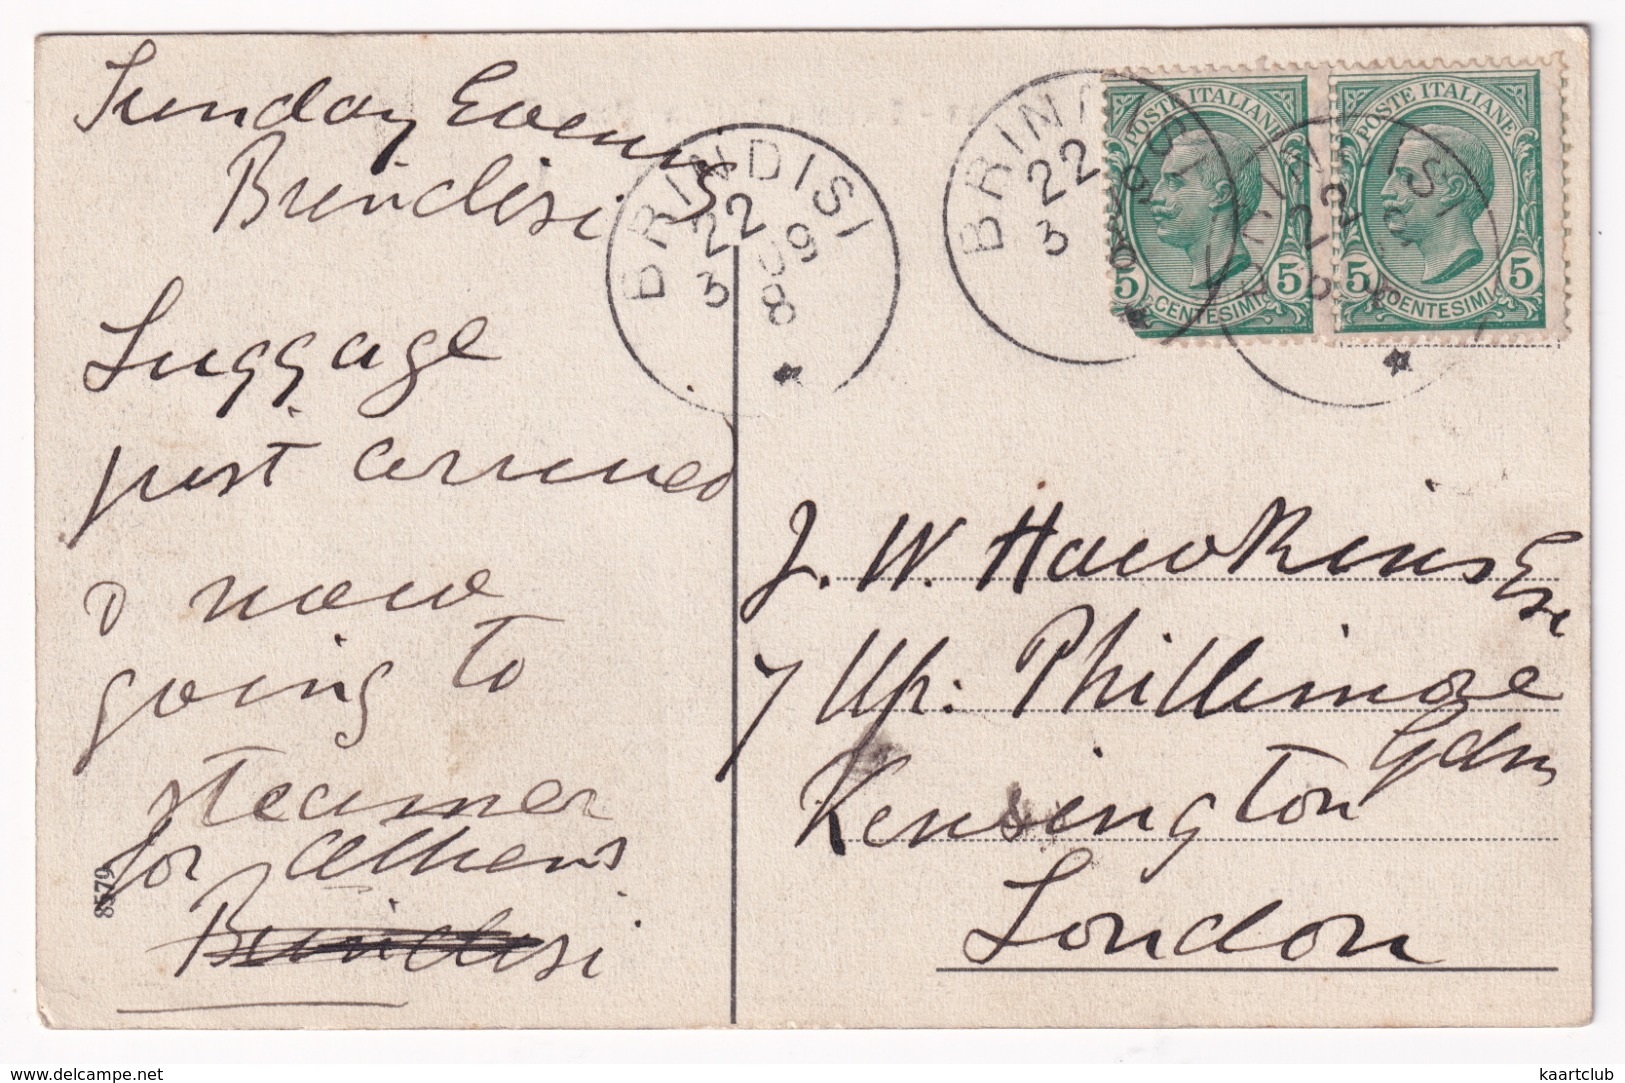 Sunday Evening
Brindisi
Luggage
just arrived
& now
going to
steamer
for Athens
Brindisi
8579
BRINDISI
22 9
08
3 8
BRINDISI
22 9
3 8
POSTE ITALIANE
5 CENTESIMI 5
POSTE ITALIANE
5 CENTESIMI 5
J. W. Hawkins Esq
7 Up: Phillimore
Gdns
Kensington
London
www.delcampe.net
kaartclub